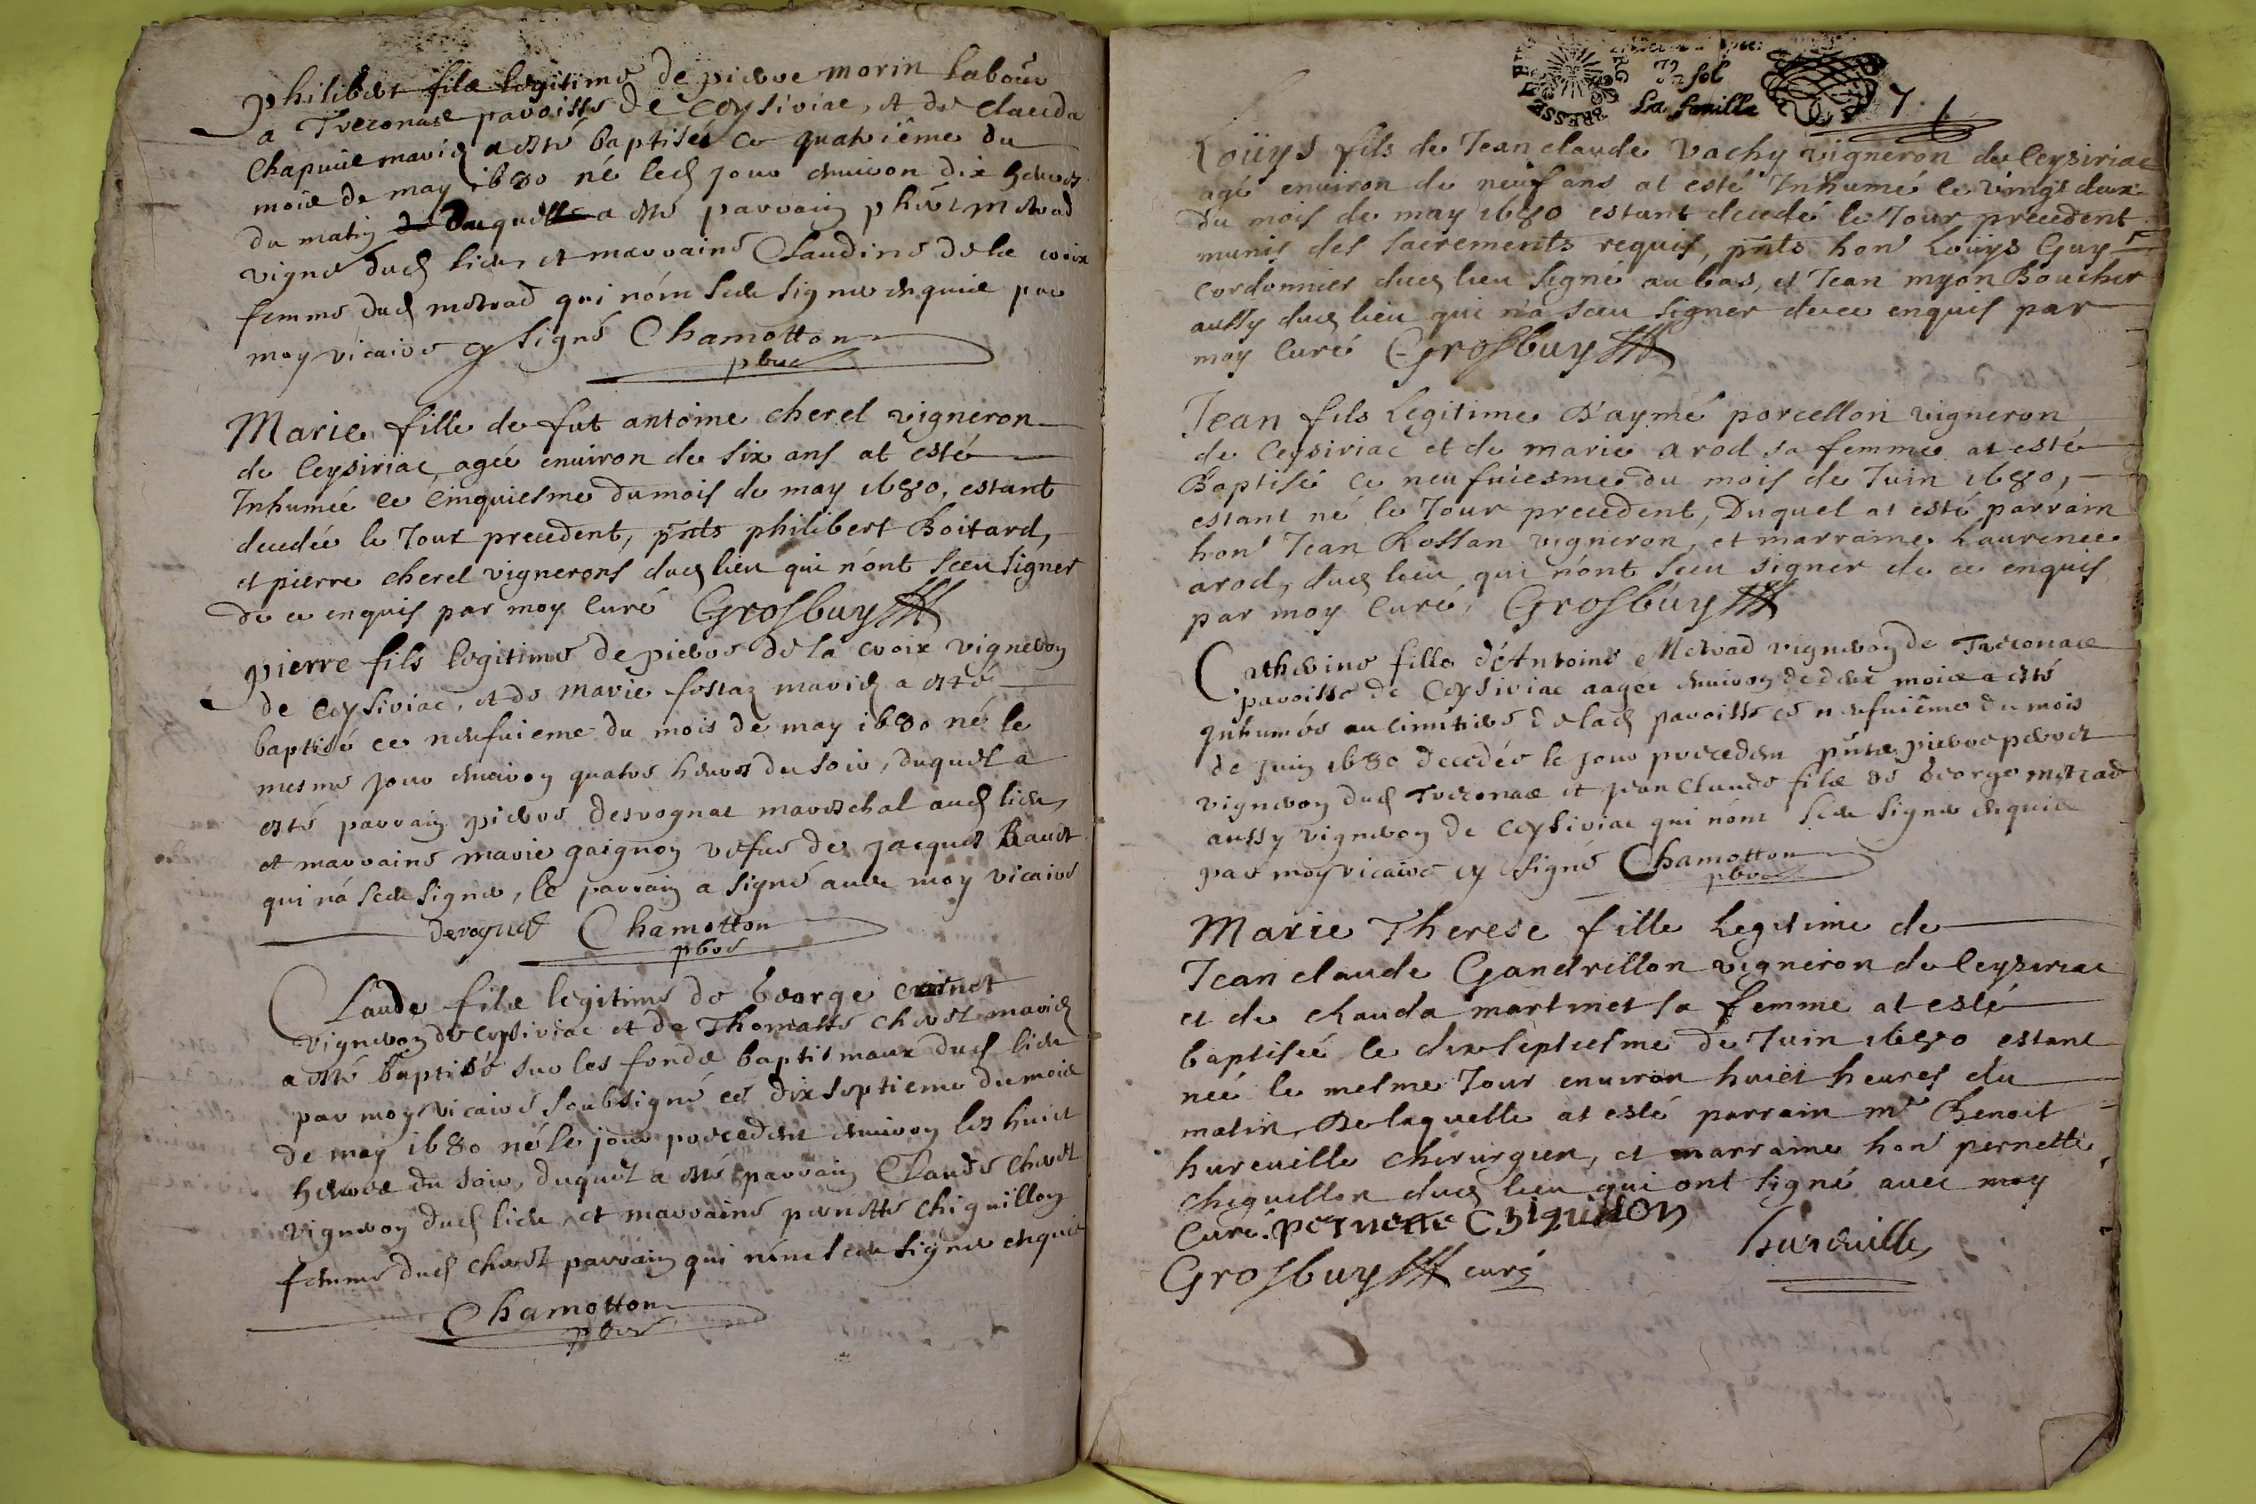 Philibert fils legitime de pierre morin labour
a Treconas paroisse de Ceysiriac, et de clauda
Chapuis mariez a esté baptisé ce quatriême du
mois de may 1680 né led jour environ dix heures
du matin duquel a esté parrain phibert Metrad
vigne dud lieu et marraine Claudine de la croix
femme dud metrad qui nont sceu signer enquis par
moy vicaire sy signé Chamotton
pbre
Marie fille de fut antoine cherel vigneron
de Ceysiriac agée environ de six ans at esté
Inhumée ce Cinquiesme du mois de may 1680, estant
decedée le Jour precedent, pnts philibert Boitard,
et pierre cherel vignerons dud lieu qui n'ont sceu signer
de ce enquis par moy Curé Grosbuy
pierre fils legitime de pierre de la croix vigneron
de Ceysiriac, et de marie fostaz mariez a esté
baptisé ce neufuieme du mois de may 1680 né le
mesme jour environ quatre heures du soir, duquel a
esté parrain pierre desrognat mareschal aud lieu,
et marraine marie gaignon vefue de jacques Baudt
qui n'a sceu signer, le parrain a signé avec moy vicaire
derognat Chamotton
pbre
Claude fils legitime de george
vigneron de Ceysiriac et de Thomasse cherel mariez
a esté baptisé sur les fonds baptismaux dud lieu
par moy vicaire soubsigné ce dixseptieme du mois
de may 1680 né le jour precedent environ les huict
heures du soir, duquel a esté parrain Claude cherel
vigneron dud lieu, et marraine pernette chiquillon
femme dud cherel parrain qui n'ont sceu signer enquis
Chamotton
pbre
In fol
La feuille
7.
Loüys fils de Jean claude vachy vigneron de Ceysiriac
agé environ de neuf ans at esté Inhumé le vingt deux
du mois de may 1680 estant decedé le Jour precedent
munis des sacrements requis, pnts hon Loüys Guy
cordonnier dud lieu signé au bas, et Jean myon Boucher
aussy dud lieu qui n'a sceu signer de ce enquis par
moy Curé Grosbuy
Jean fils Legitime d'aymé porcellon vigneron
de Ceysiriac et de marie arod sa femme at esté
Baptisé ce neufuiesme du mois de Juin 1680,
estant né le Jour precedent, Duquel at esté parrain
hon Jean Rossan vigneron, et marraine Laurence
arod, dud lieu qui n'ont sceu signer de ce enquis
par moy Curé, Grosbuy
Catherine fille d'Antoine Metrad vigneron de Treconas
paroisse de Ceysiriac aagée environ de deux mois a esté
Inhumée au cimitiere de lad paroisse ce neufuiême du mois
de juin 1680 decedée le jour precedent pnts pierre perret
vigneron dud Treconas et jean Claude fils de George metrad
aussy vigneron de Ceysiriac qui nont sceu signer enquis
par moy vicaire sy signé Chamotton
pbre
Marie Therese fille Legitime de
Jean claude Gandrillon vigneron de Ceysiriac
et de clauda martinet sa femme at esté
baptisée le dixseptiesme de Juin 1680 estant
née le mesme Jour environ huict heures du
matin, De laquelle at esté parrain mr Benoit
hureuille chirurgien, et marraine hon pernette
chiquillon dud lieu qui ont signé avec moy
Curé. pernette Chiquillon
hureuille
Grosbuy curé